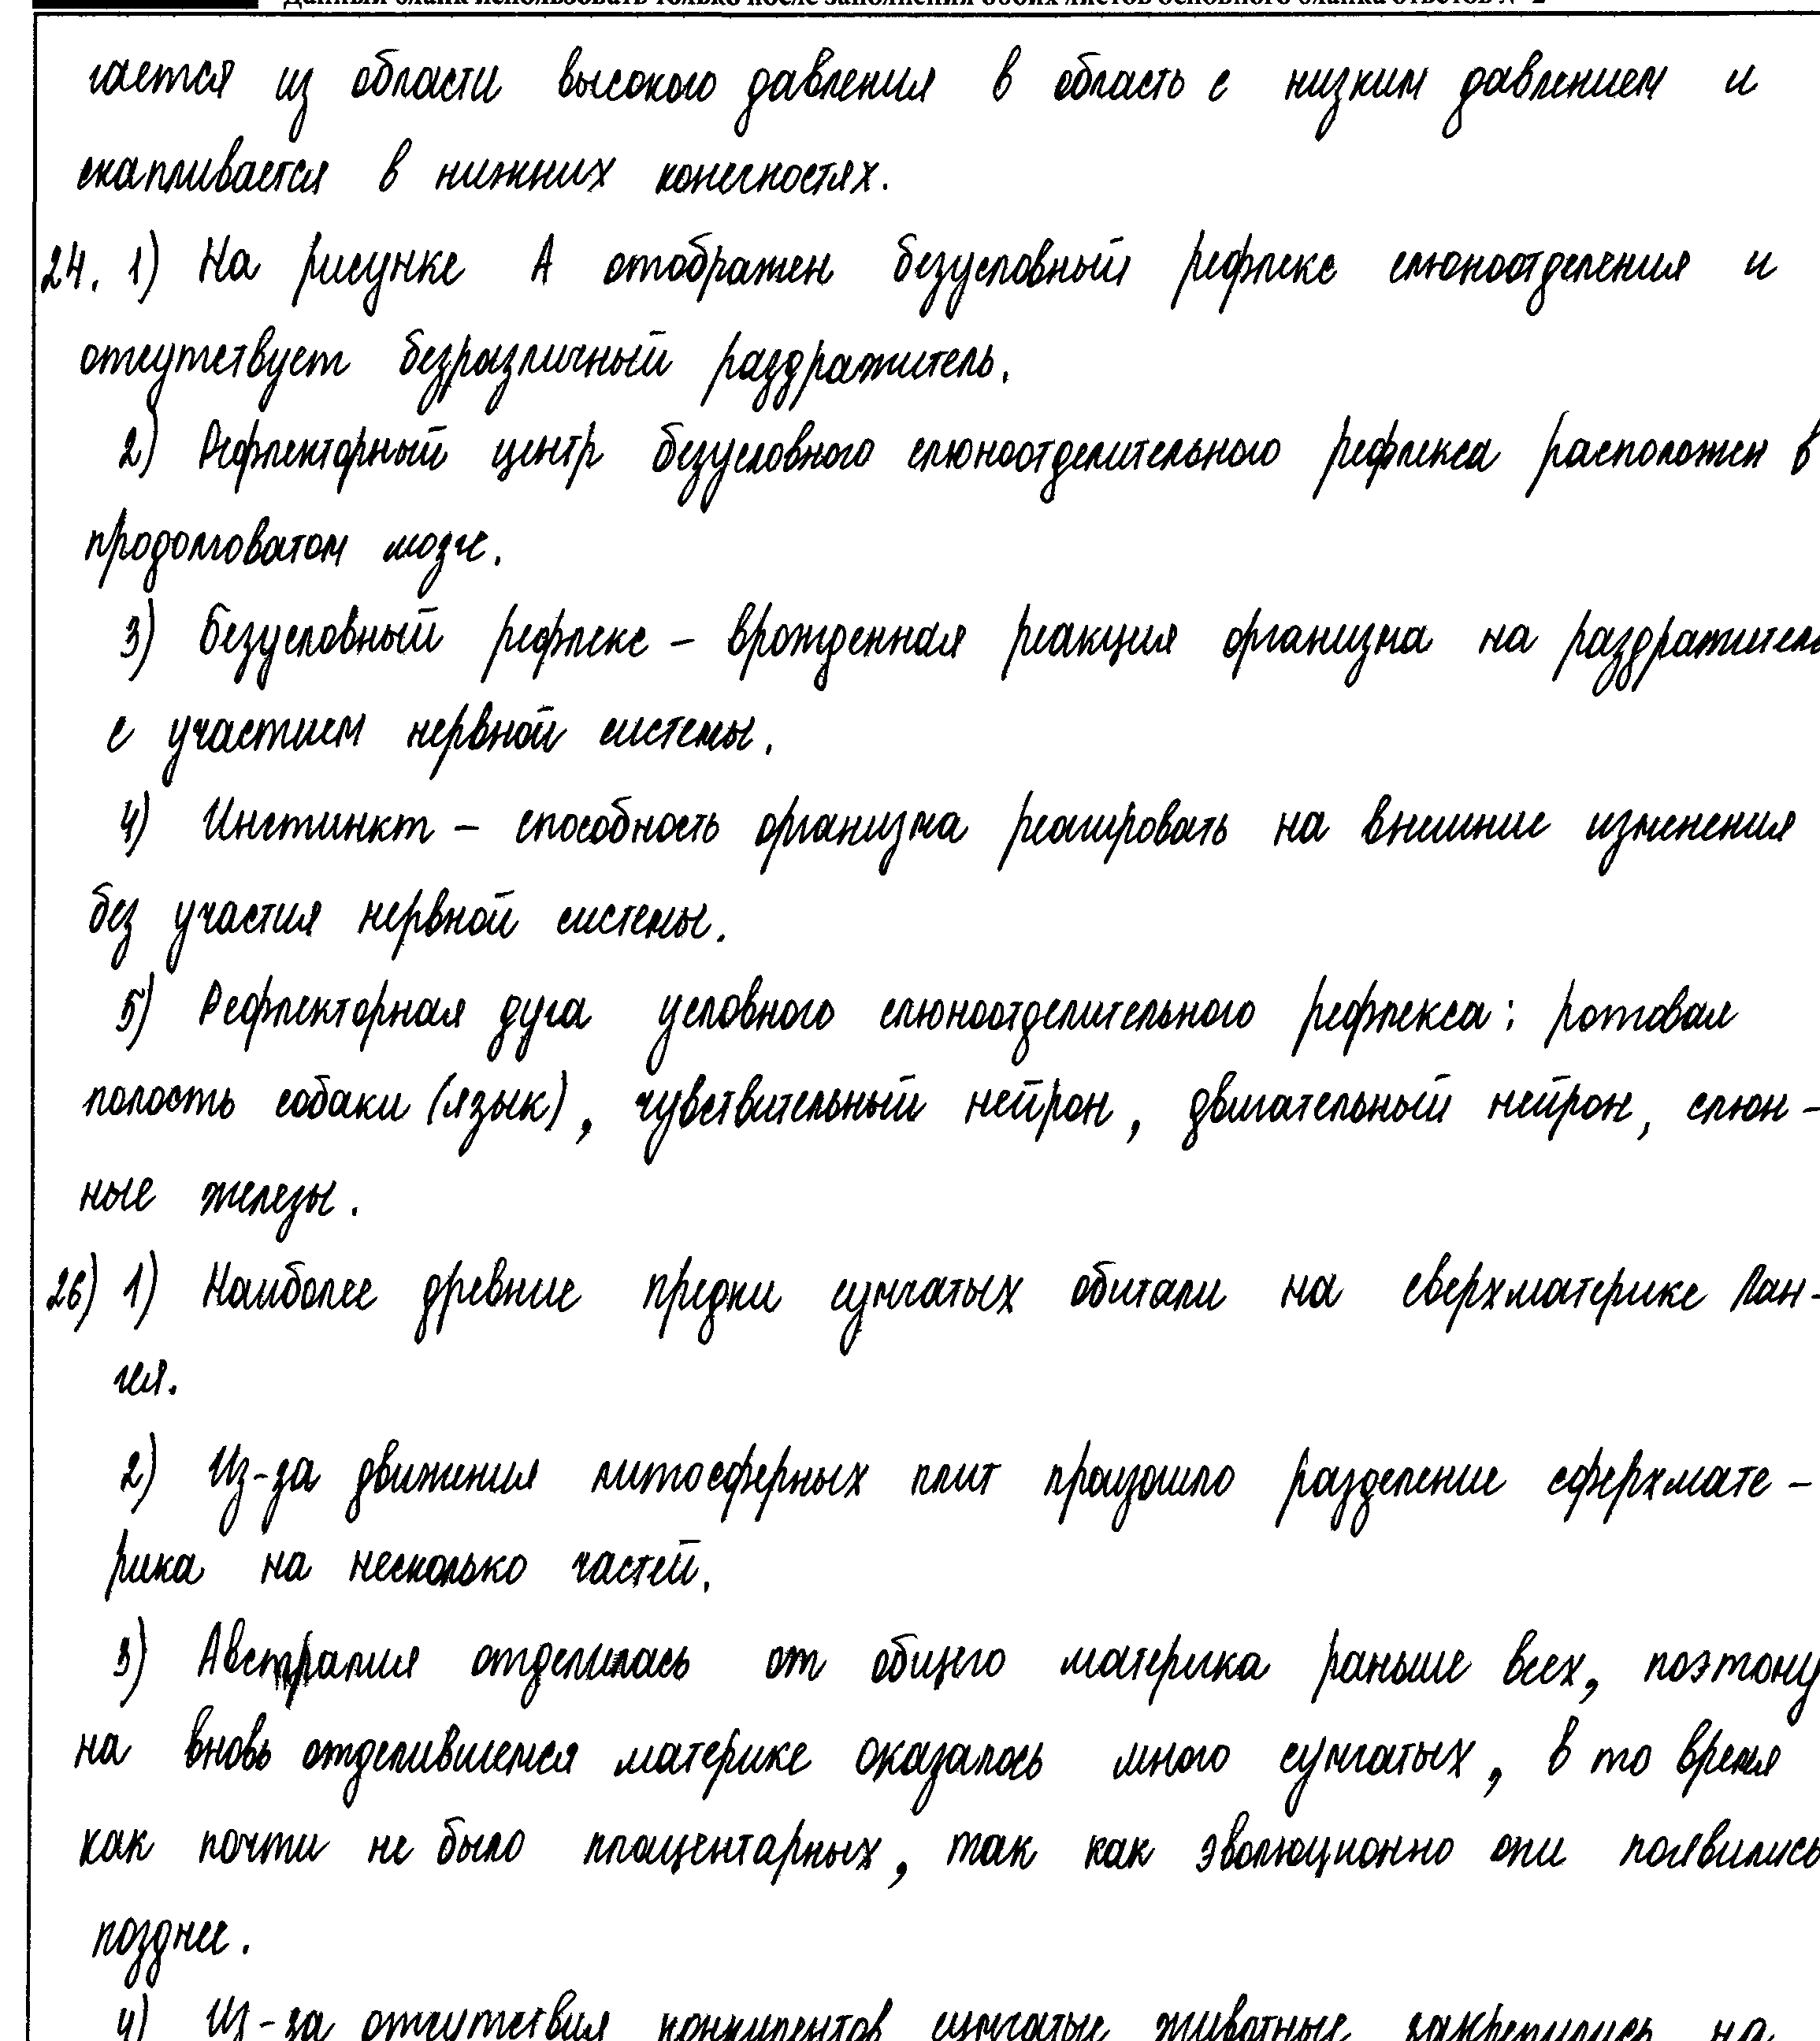 Данный бланк использовать только после заполнения обоих листов основного бланка ответов № 2
гается из области высокого давления в область с низким давлением и
скапливается в нижних конечностях.
24. 1) На рисунке А отображен безусловный рефлекс слюноотделения и
отсутствует безразличный раздражитель.
2) Рефлекторный центр безусловного слюноотделительного рефлекса расположен в
продолговатом мозге.
3) Безусловный рефлекс – врожденная реакция организма на раздражитель
с участием нервной системы.
4) Инстинкт – способность организма реагировать на внешние изменения
без участия нервной системы.
5) Рефлекторная дуга условного слюноотделительного рефлекса: ротовая
полость собаки (язык), чувствительный нейрон, двигательный нейрон, слюн-
ные железы.
26) 1) Наиболее древние предки сумчатых обитали на сверхматерике Пан-
гея.
2) Из-за движения литосферных плит произошло разделение сферхмате-
рика на несколько частей.
3) Австралия отделилась от общего материка раньше всех, поэтому
на вновь отделившемся материке оказалось много сумчатых, в то время
как почти не было плацентарных, так как эволюционно они появились
позднее.
4) Из-за отсутствия конкурентов сумчатые животные закрепились на